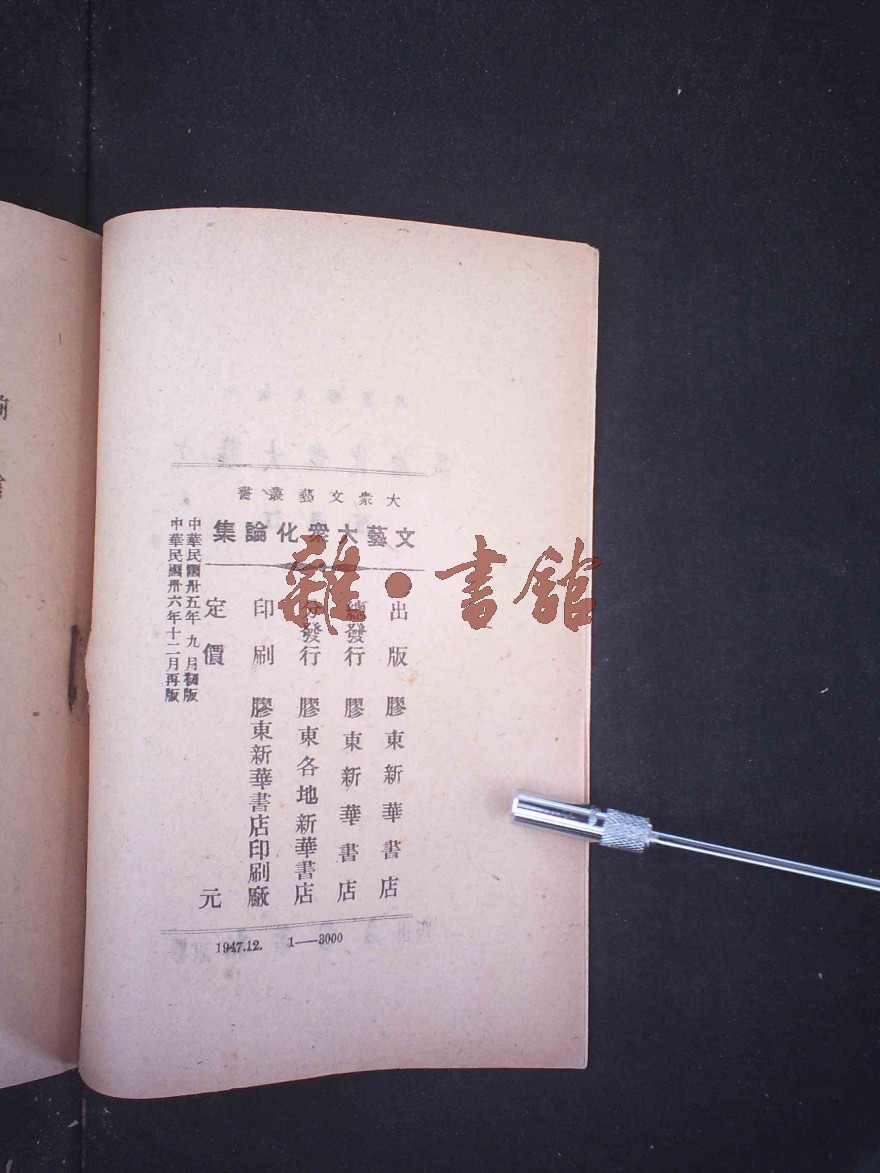 大眾文藝叢書
文藝大眾化論集
出版 膠東新華書店
總發行 膠東新華書店
分發行 膠東各地新華書店
印刷 膠東新華書店印刷廠
定價 元
中華民國卅五年九月初版
中華民國卅六年十二月再版
1947.12. 1—3000
雜·書館